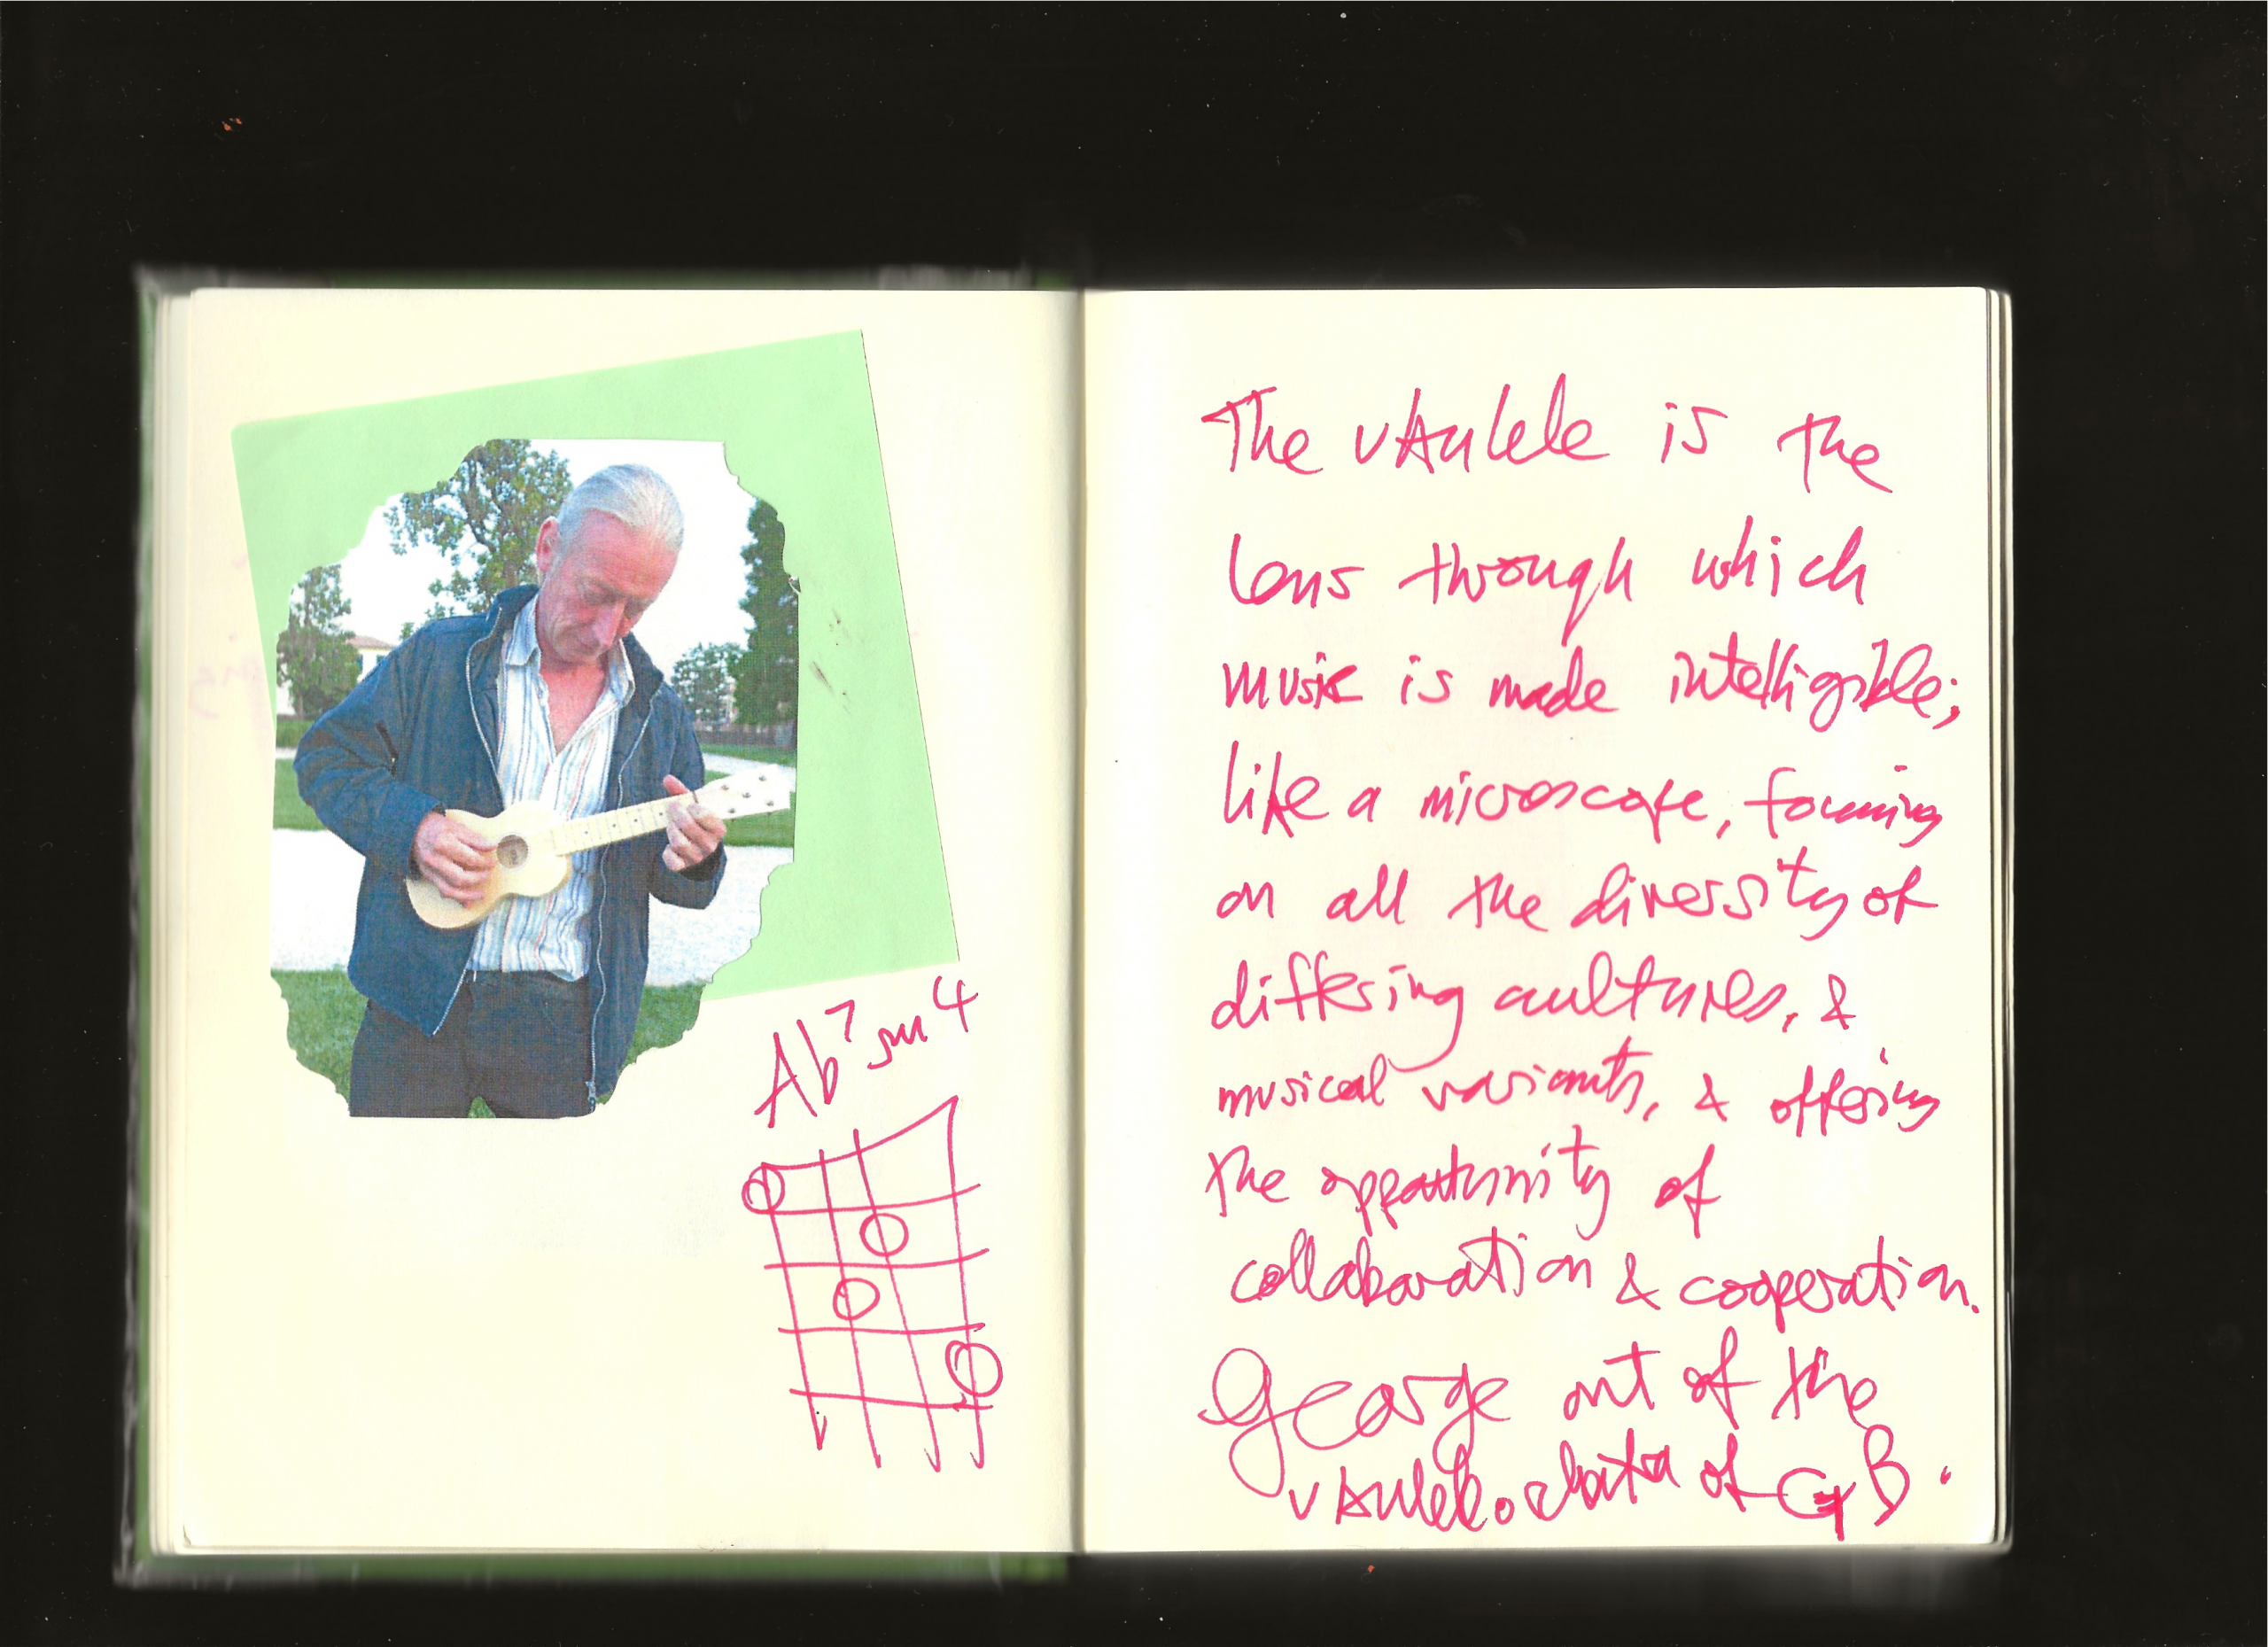 Ab7 sus4
The ukulele is the
lens through which
music is made intelligible;
like a microscope, focusing
on all the diversity of
differing cultures, &
musical variants, & offering
the opportunity of
collaboration & cooperation.
George out of the
ukulele orchestra of GB.